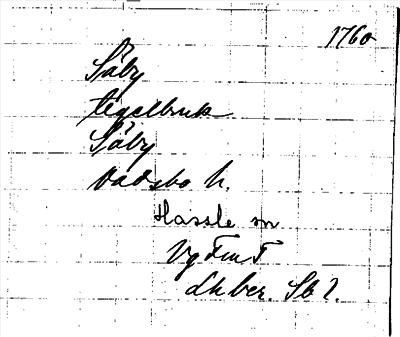 1760
Säby
tegelbruk
Säby
Vadsbo h.
Hassle sn
Vg
Lhber. Sk 1.